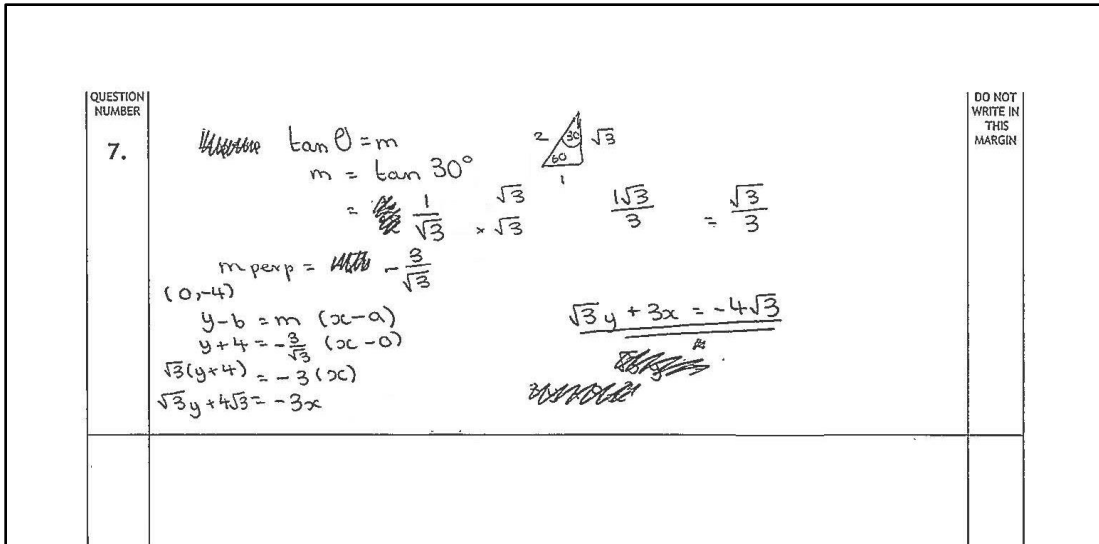 QUESTION NUMBER
DO NOT WRITE IN THIS MARGIN
7.
tan θ = m
m = tan 30°
2 30 √3
60
1
= 1/√3 × √3/√3 1√3/3 = √3/3
m perp = -3/√3
(0,-4)
y-b = m (x-a)
y+4 = -3/√3 (x-0)
√3(y+4) = -3(x)
√3y + 4√3 = -3x
√3y + 3x = -4√3